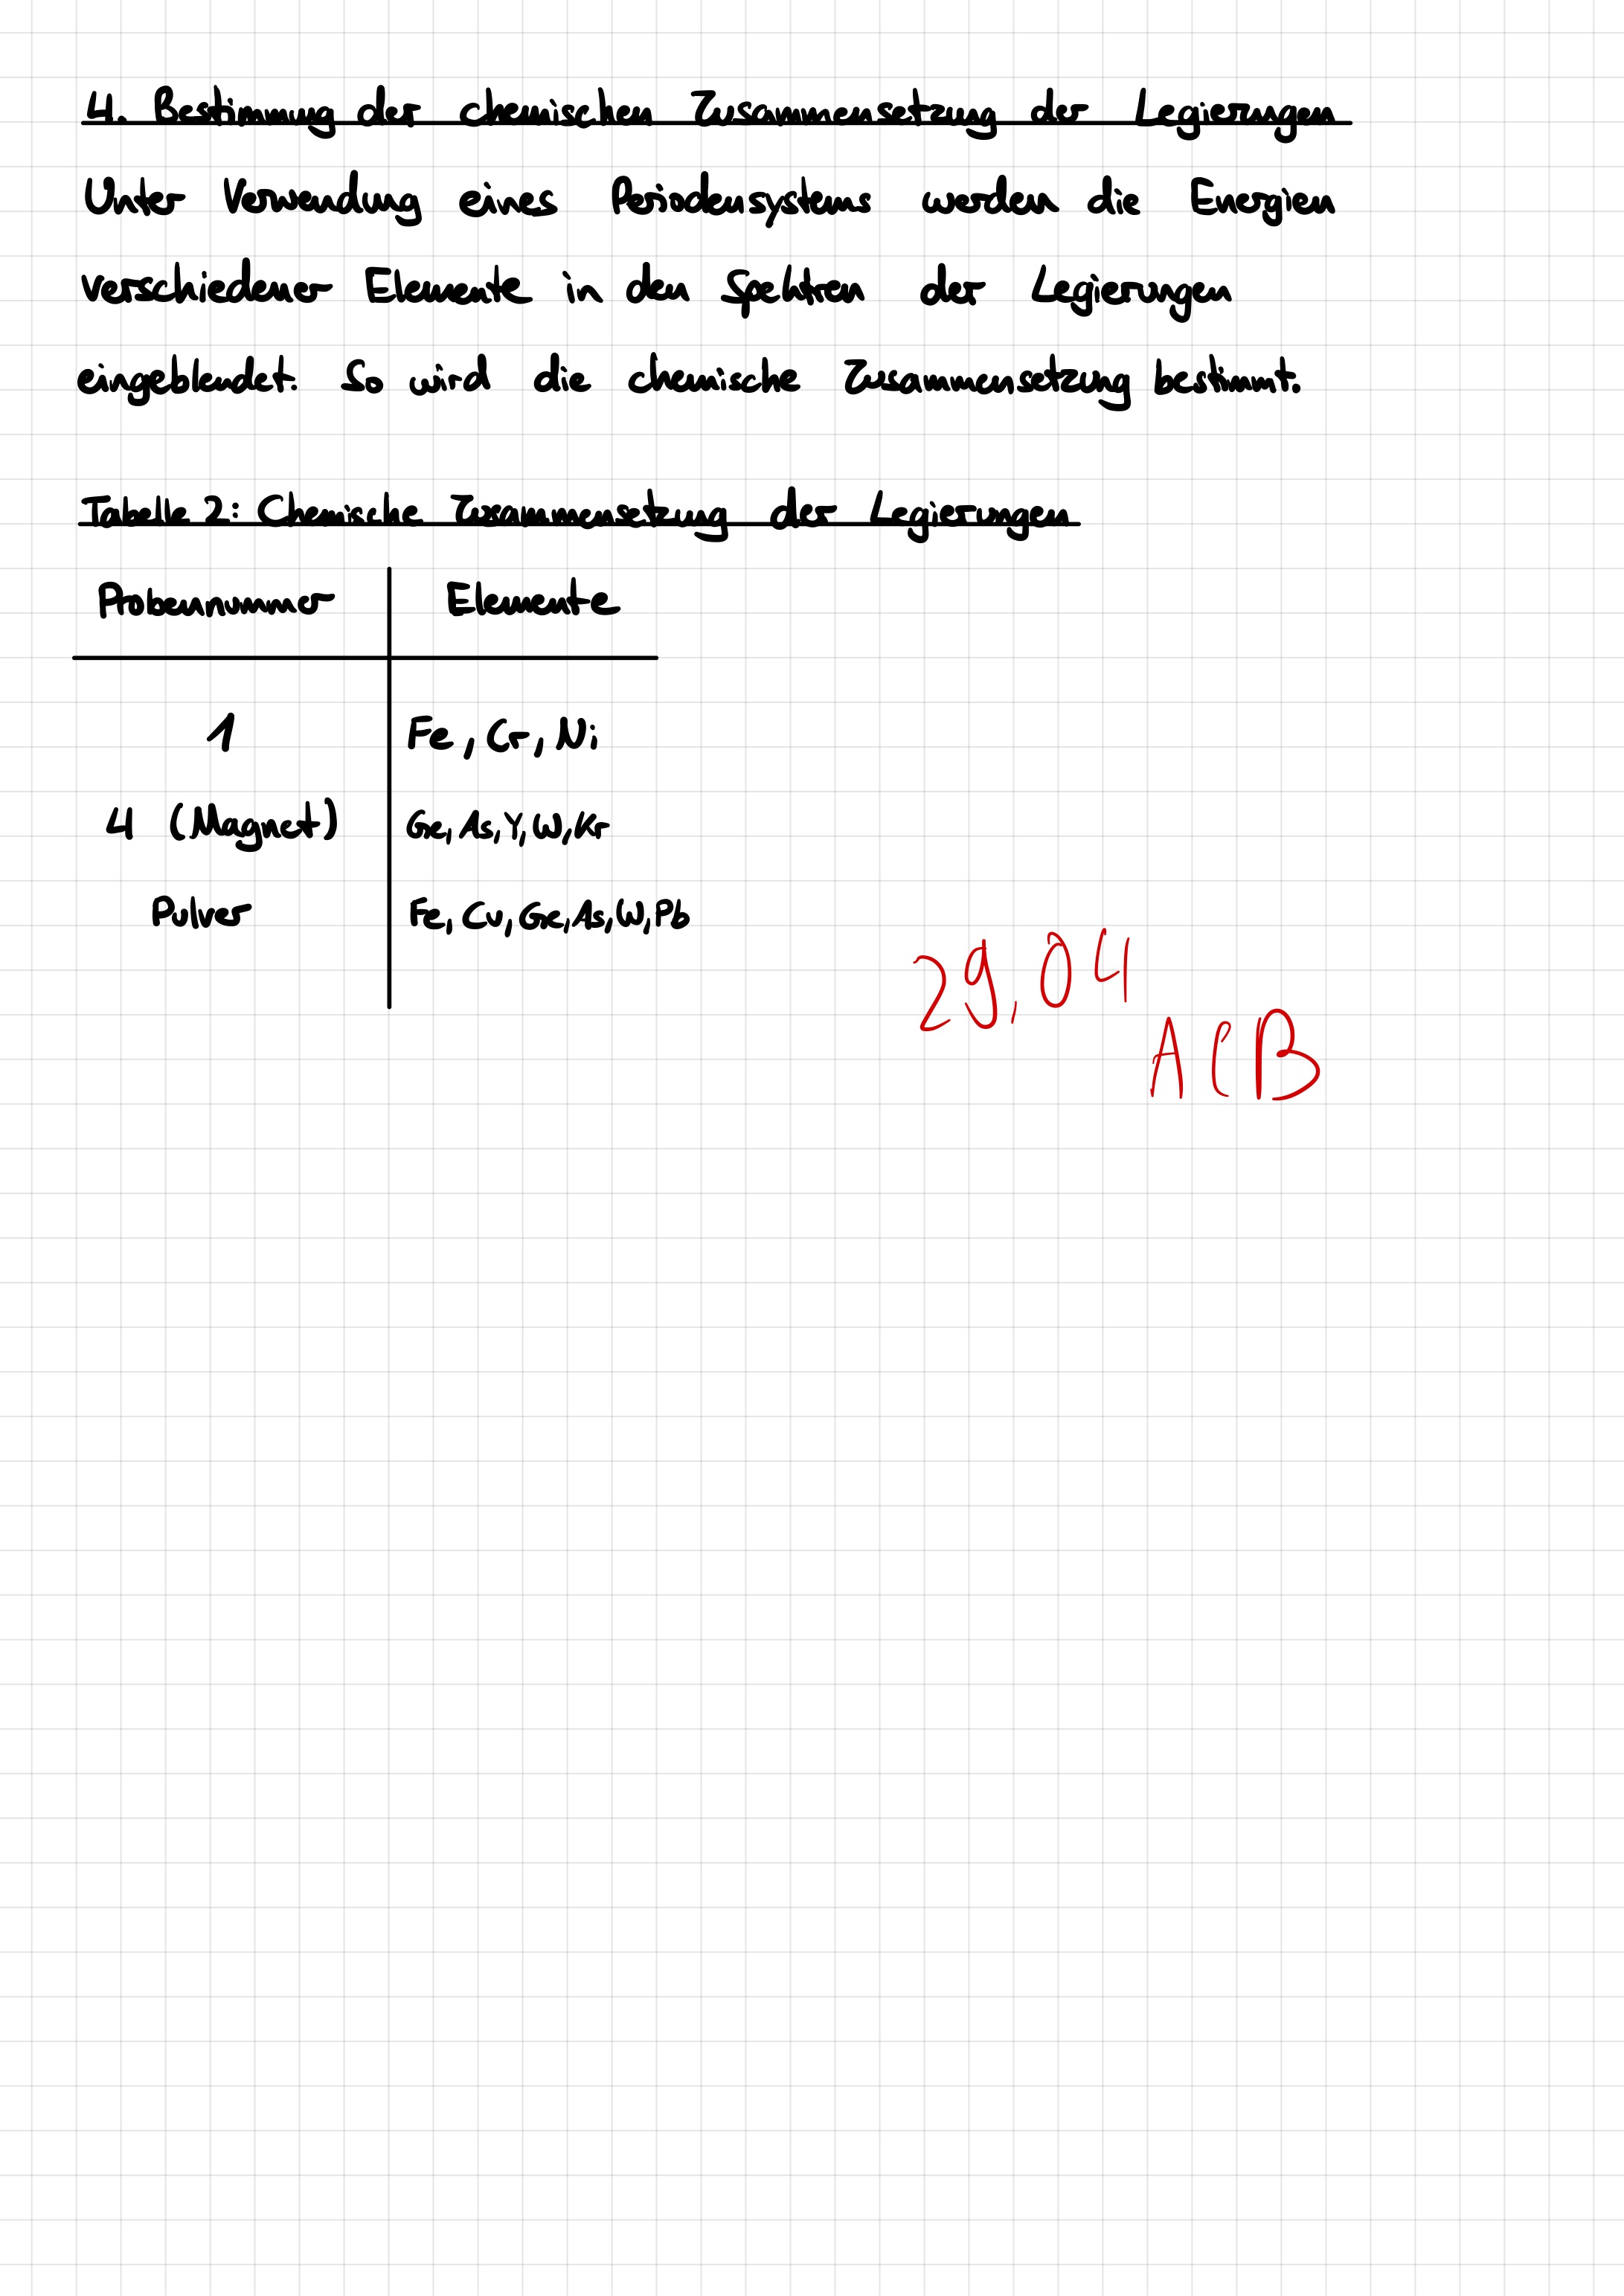 4. Bestimmung der chemischen Zusammensetzung der Legierungen
Unter Verwendung eines Periodensystems werden die Energien
verschiedener Elemente in den Spektren der Legierungen
eingeblendet. So wird die chemische Zusammensetzung bestimmt.
Tabelle 2: Chemische Zusammensetzung der Legierungen
Probennummer Elemente
1 Fe, Cr, Ni
4 (Magnet) Ge, As, Y, W, Kr
Pulver Fe, Cu, Ge, As, W, Pb
29.04
ACB